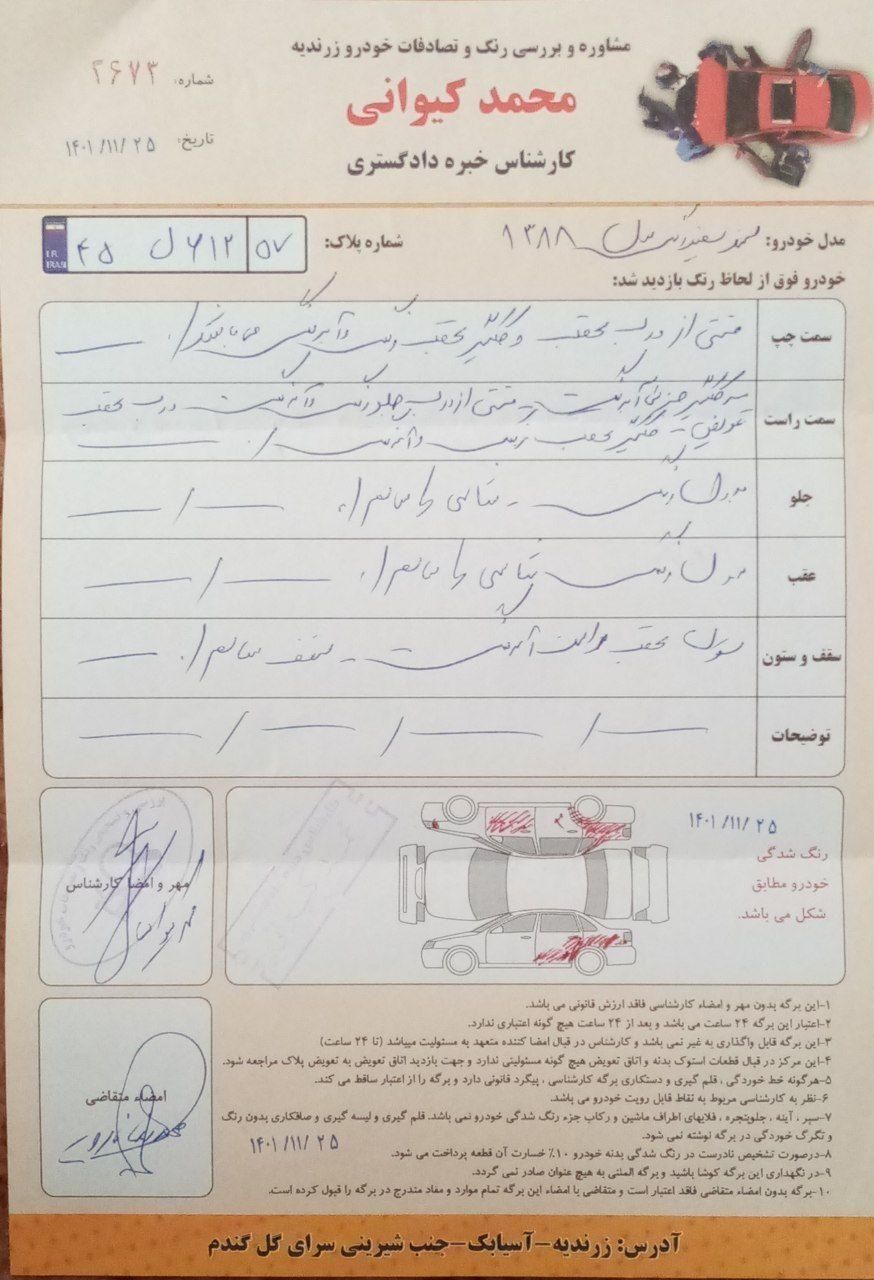 مشاوره و بررسی رنگ و تصادفات خودرو زرندیه
محمد کیوانی
کارشناس خبره دادگستری
شماره: ۲۶۷۳
تاریخ: ۱۴۰۱/۱۱/۲۵
مدل خودرو: سمند سفید رنگ مدل ۱۳۸۸
شماره پلاک: ۴۵ ل ۶۱۲ ۵۷
I.R.
IRAN
خودرو فوق از لحاظ رنگ بازدید شد:
سمت چپ
قسمتی از درب عقب و گلگیر عقب رنگ و آثر رنگ می باشد
سمت راست
گلگیر جلو لکه رنگ - قسمتی از درب جلو رنگ درب عقب
تعویض - گلگیر عقب رنگ
جلو
بدون رنگ - شاسی ها سالم
عقب
بدون رنگ شاسی ها سالم
سقف و ستون
ستون عقب راست - سقف سالم
توضیحات
۱۴۰۱/۱۱/۲۵
رنگ شدگی
خودرو مطابق
شکل می باشد.
مهر و امضا کارشناس
۱-این برگه بدون مهر و امضاء کارشناسی فاقد ارزش قانونی می باشد.
۲-اعتبار این برگه ۲۴ ساعت می باشد و بعد از ۲۴ ساعت هیچ گونه اعتباری ندارد.
۳-این برگه قابل واگذاری به غیر نمی باشد و کارشناس در قبال امضا کننده متعهد به مسئولیت میباشد (تا ۲۴ ساعت)
۴-این مرکز در قبال قطعات استوک بدنه و اتاق تعویض هیچ گونه مسئولیتی ندارد و جهت بازدید اتاق تعویض به تعویض پلاک مراجعه شود.
۵-هرگونه خط خوردگی ، قلم گیری و دستکاری برگه کارشناسی ، پیگرد قانونی دارد و برگه را از اعتبار ساقط می کند.
۶-نظر به کارشناسی مربوط به نقاط قابل رویت خودرو می باشد.
۷-سپر ، آینه ، جلوپنجره ، فلاپهای اطراف ماشین و رکاب جزء رنگ شدگی خودرو نمی باشد. قلم گیری و لیسه گیری و صافکاری بدون رنگ
و تگرگ خوردگی در برگه نوشته نمی شود.
۸-درصورت تشخیص نادرست در رنگ شدگی بدنه خودرو ۱۰٪ خسارت آن قطعه پرداخت می شود.
۹-در نگهداری این برگه کوشا باشید و برگه المثنی به هیچ عنوان صادر نمی گردد.
۱۰-برگه بدون امضاء متقاضی فاقد اعتبار است و متقاضی با امضاء این برگه تمام موارد و مفاد مندرج در برگه را قبول کرده است.
امضاء متقاضی
۱۴۰۱/۱۱/۲۵
آدرس: زرندیه-آسیابک-جنب شیرینی سرای گل گندم